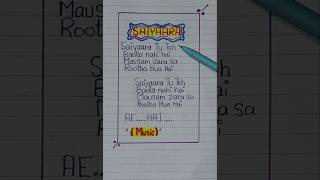 SAIYAARA
Saiyaara Tu Toh
Badla nahi hai
Mausam Zara sa
Rootha Hua Hai
Saiyaara Tu Toh
Badla nahi hai
Mausam Zara sa
Rootha Hua Hai
AE.... HAI....
"(Music)"
AE....
sa